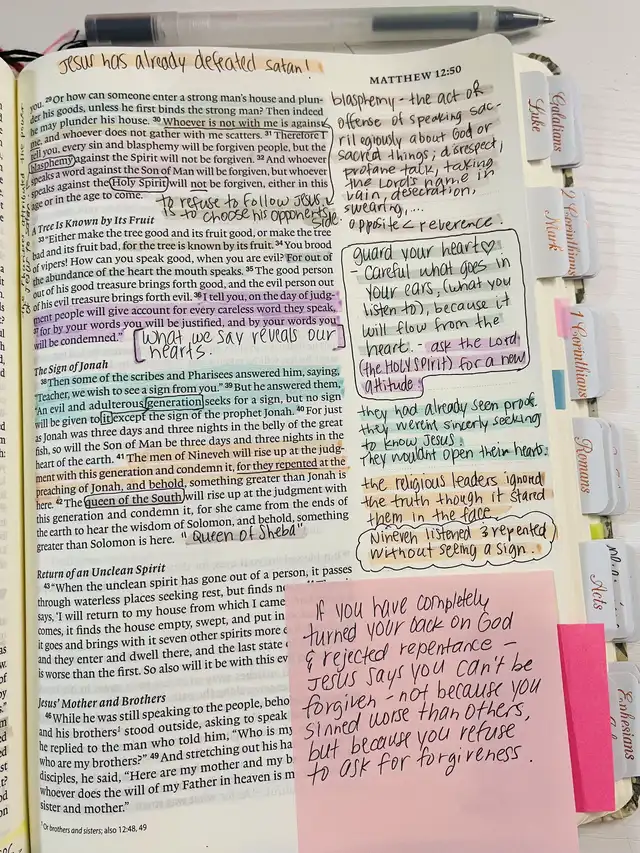 Jesus has already defeated satan!
MATTHEW 12:50
you. 29 Or how can someone enter a strong man's house and plun-
der his goods, unless he first binds the strong man? Then indeed
he may plunder his house. 30 Whoever is not with me is against
me, and whoever does not gather with me scatters. 31 Therefore I
tell you, every sin and blasphemy will be forgiven people, but the
blasphemy against the Spirit will not be forgiven. 32 And whoever
speaks a word against the Son of Man will be forgiven, but whoever
speaks against the Holy Spirit will not be forgiven, either in this
age or in the age to come.
to refuse to follow Jesus
is to choose his opponents
side.
A Tree Is Known by Its Fruit
33 "Either make the tree good and its fruit good, or make the tree
bad and its fruit bad, for the tree is known by its fruit. 34 You brood
of vipers! How can you speak good, when you are evil? For out of
the abundance of the heart the mouth speaks. 35 The good person
out of his good treasure brings forth good, and the evil person out
of his evil treasure brings forth evil. 36 I tell you, on the day of judg-
ment people will give account for every careless word they speak,
37 for by your words you will be justified, and by your words you
will be condemned."
[What we say reveals our
hearts.]
The Sign of Jonah
38 Then some of the scribes and Pharisees answered him, saying,
"Teacher, we wish to see a sign from you." 39 But he answered them,
"An evil and adulterous generation seeks for a sign, but no sign
will be given to it except the sign of the prophet Jonah. 40 For just
as Jonah was three days and three nights in the belly of the great
fish, so will the Son of Man be three days and three nights in the
heart of the earth. 41 The men of Nineveh will rise up at the judg-
ment with this generation and condemn it, for they repented at the
preaching of Jonah, and behold, something greater than Jonah is
here. 42 The queen of the South will rise up at the judgment with
this generation and condemn it, for she came from the ends of
the earth to hear the wisdom of Solomon, and behold, something
greater than Solomon is here.
"Queen of Sheba"
Return of an Unclean Spirit
43 "When the unclean spirit has gone out of a person, it passes
through waterless places seeking rest, but finds
says, 'I will return to my house from which I came
comes, it finds the house empty, swept, and put in
it goes and brings with it seven other spirits more
and they enter and dwell there, and the last state
is worse than the first. So also will it be with this
Jesus' Mother and Brothers
46 While he was still speaking to the people,
and his brothers¹ stood outside, asking to speak
he replied to the man who told him, "Who is my
who are my brothers?" 49 And stretching out his
disciples, he said, "Here are my mother and my
whoever does the will of my Father in heaven is
sister and mother."
¹ Or brothers and sisters; also 12:48, 49
blasphemy - the act or
offense of speaking sac-
rilegiously about God or
sacred things; disrespect,
profane talk, taking
the Lord's name in
vain, desecration,
swearing,...
opposite < reverence.
guard your heart ♡
- Careful what goes in
your ears, (what you
listen to), because it
will flow from the
heart. - ask the Lord
(the HOLY SPIRIT) for a new
attitude.
they had already seen proof.
they werent sincerly seeking
to know Jesus.
They wouldnt open their hearts.
the religious leaders ignored
the truth though it stared
them in the face.
Nineveh listened & repented
without seeing a sign.
If you have completely
turned your back on God
& rejected repentance -
Jesus says you can't be
forgiven - not because you
sinned worse than others,
but because you refuse
to ask for forgiveness.
Galatians
Luke
2 Corinthians
Mark
1 Corinthians
Romans
Acts
Ephesians